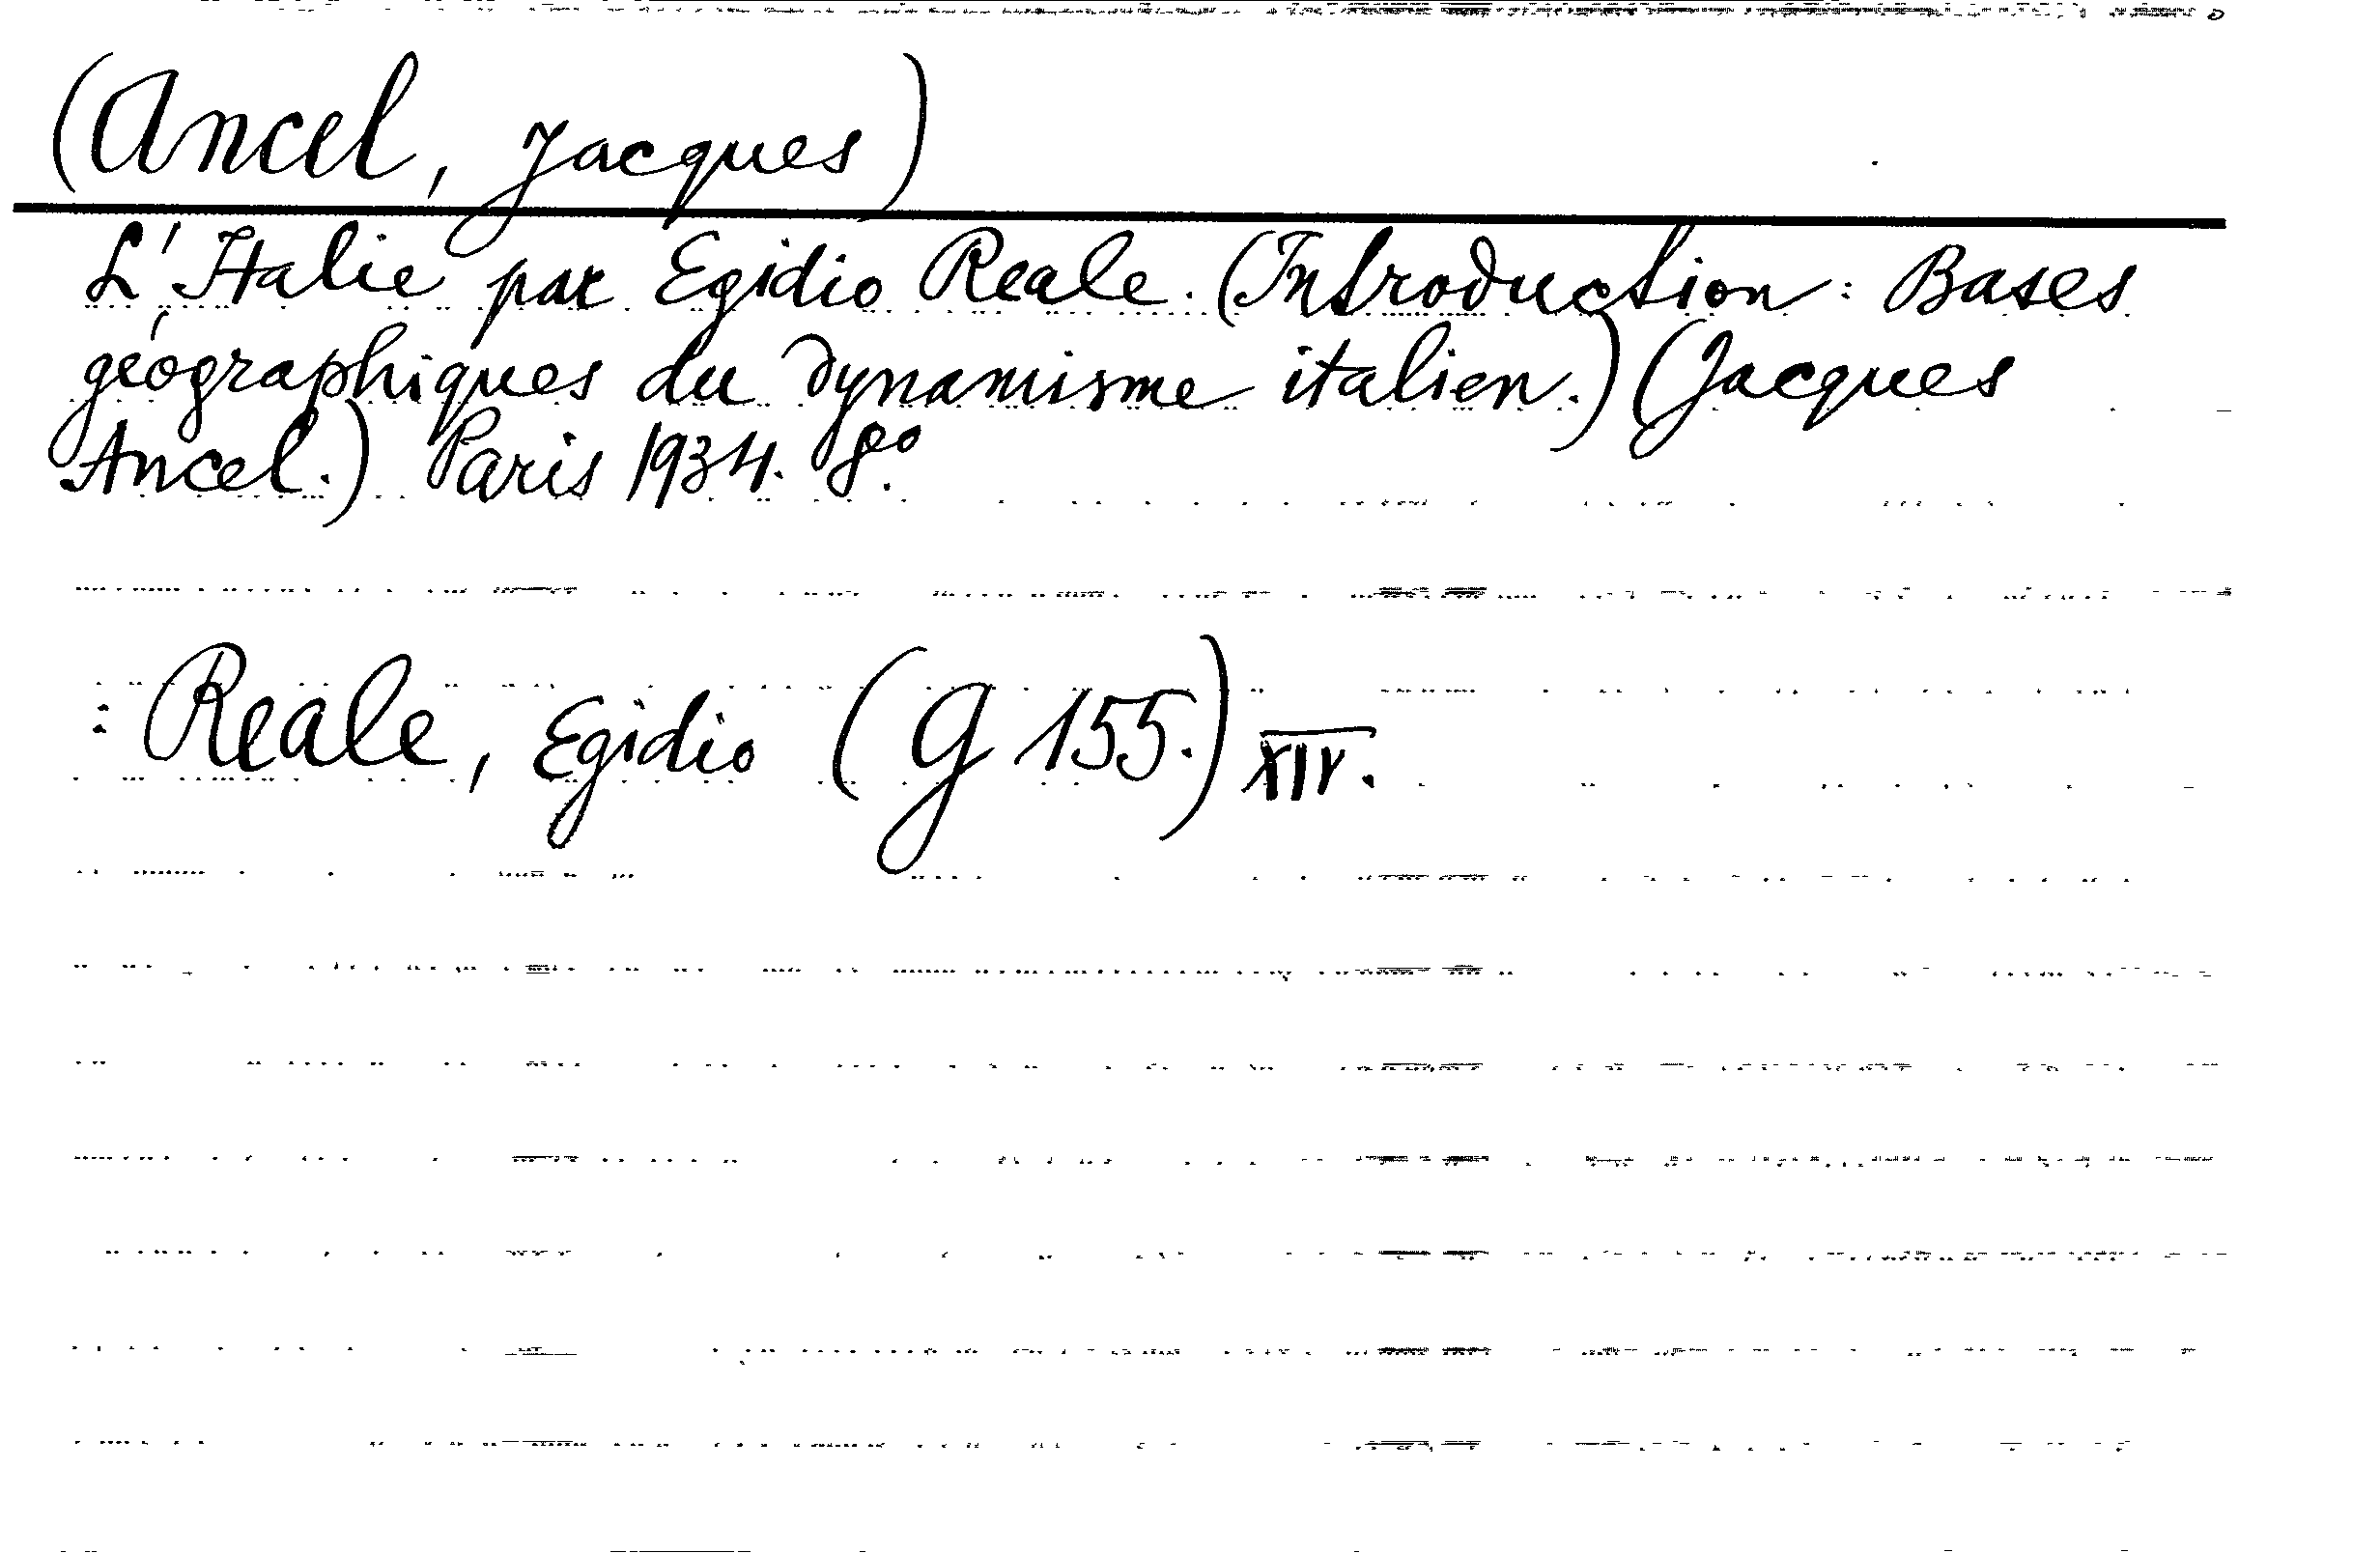 (Ancel, Jacques)
L'Italie par Egidio Reale. (Introduction: Bases
géographiques du dynamisme italien.) (Jacques
Ancel.) Paris 1934. 8º.
: Reale, Egidio (G 155.) XIV.